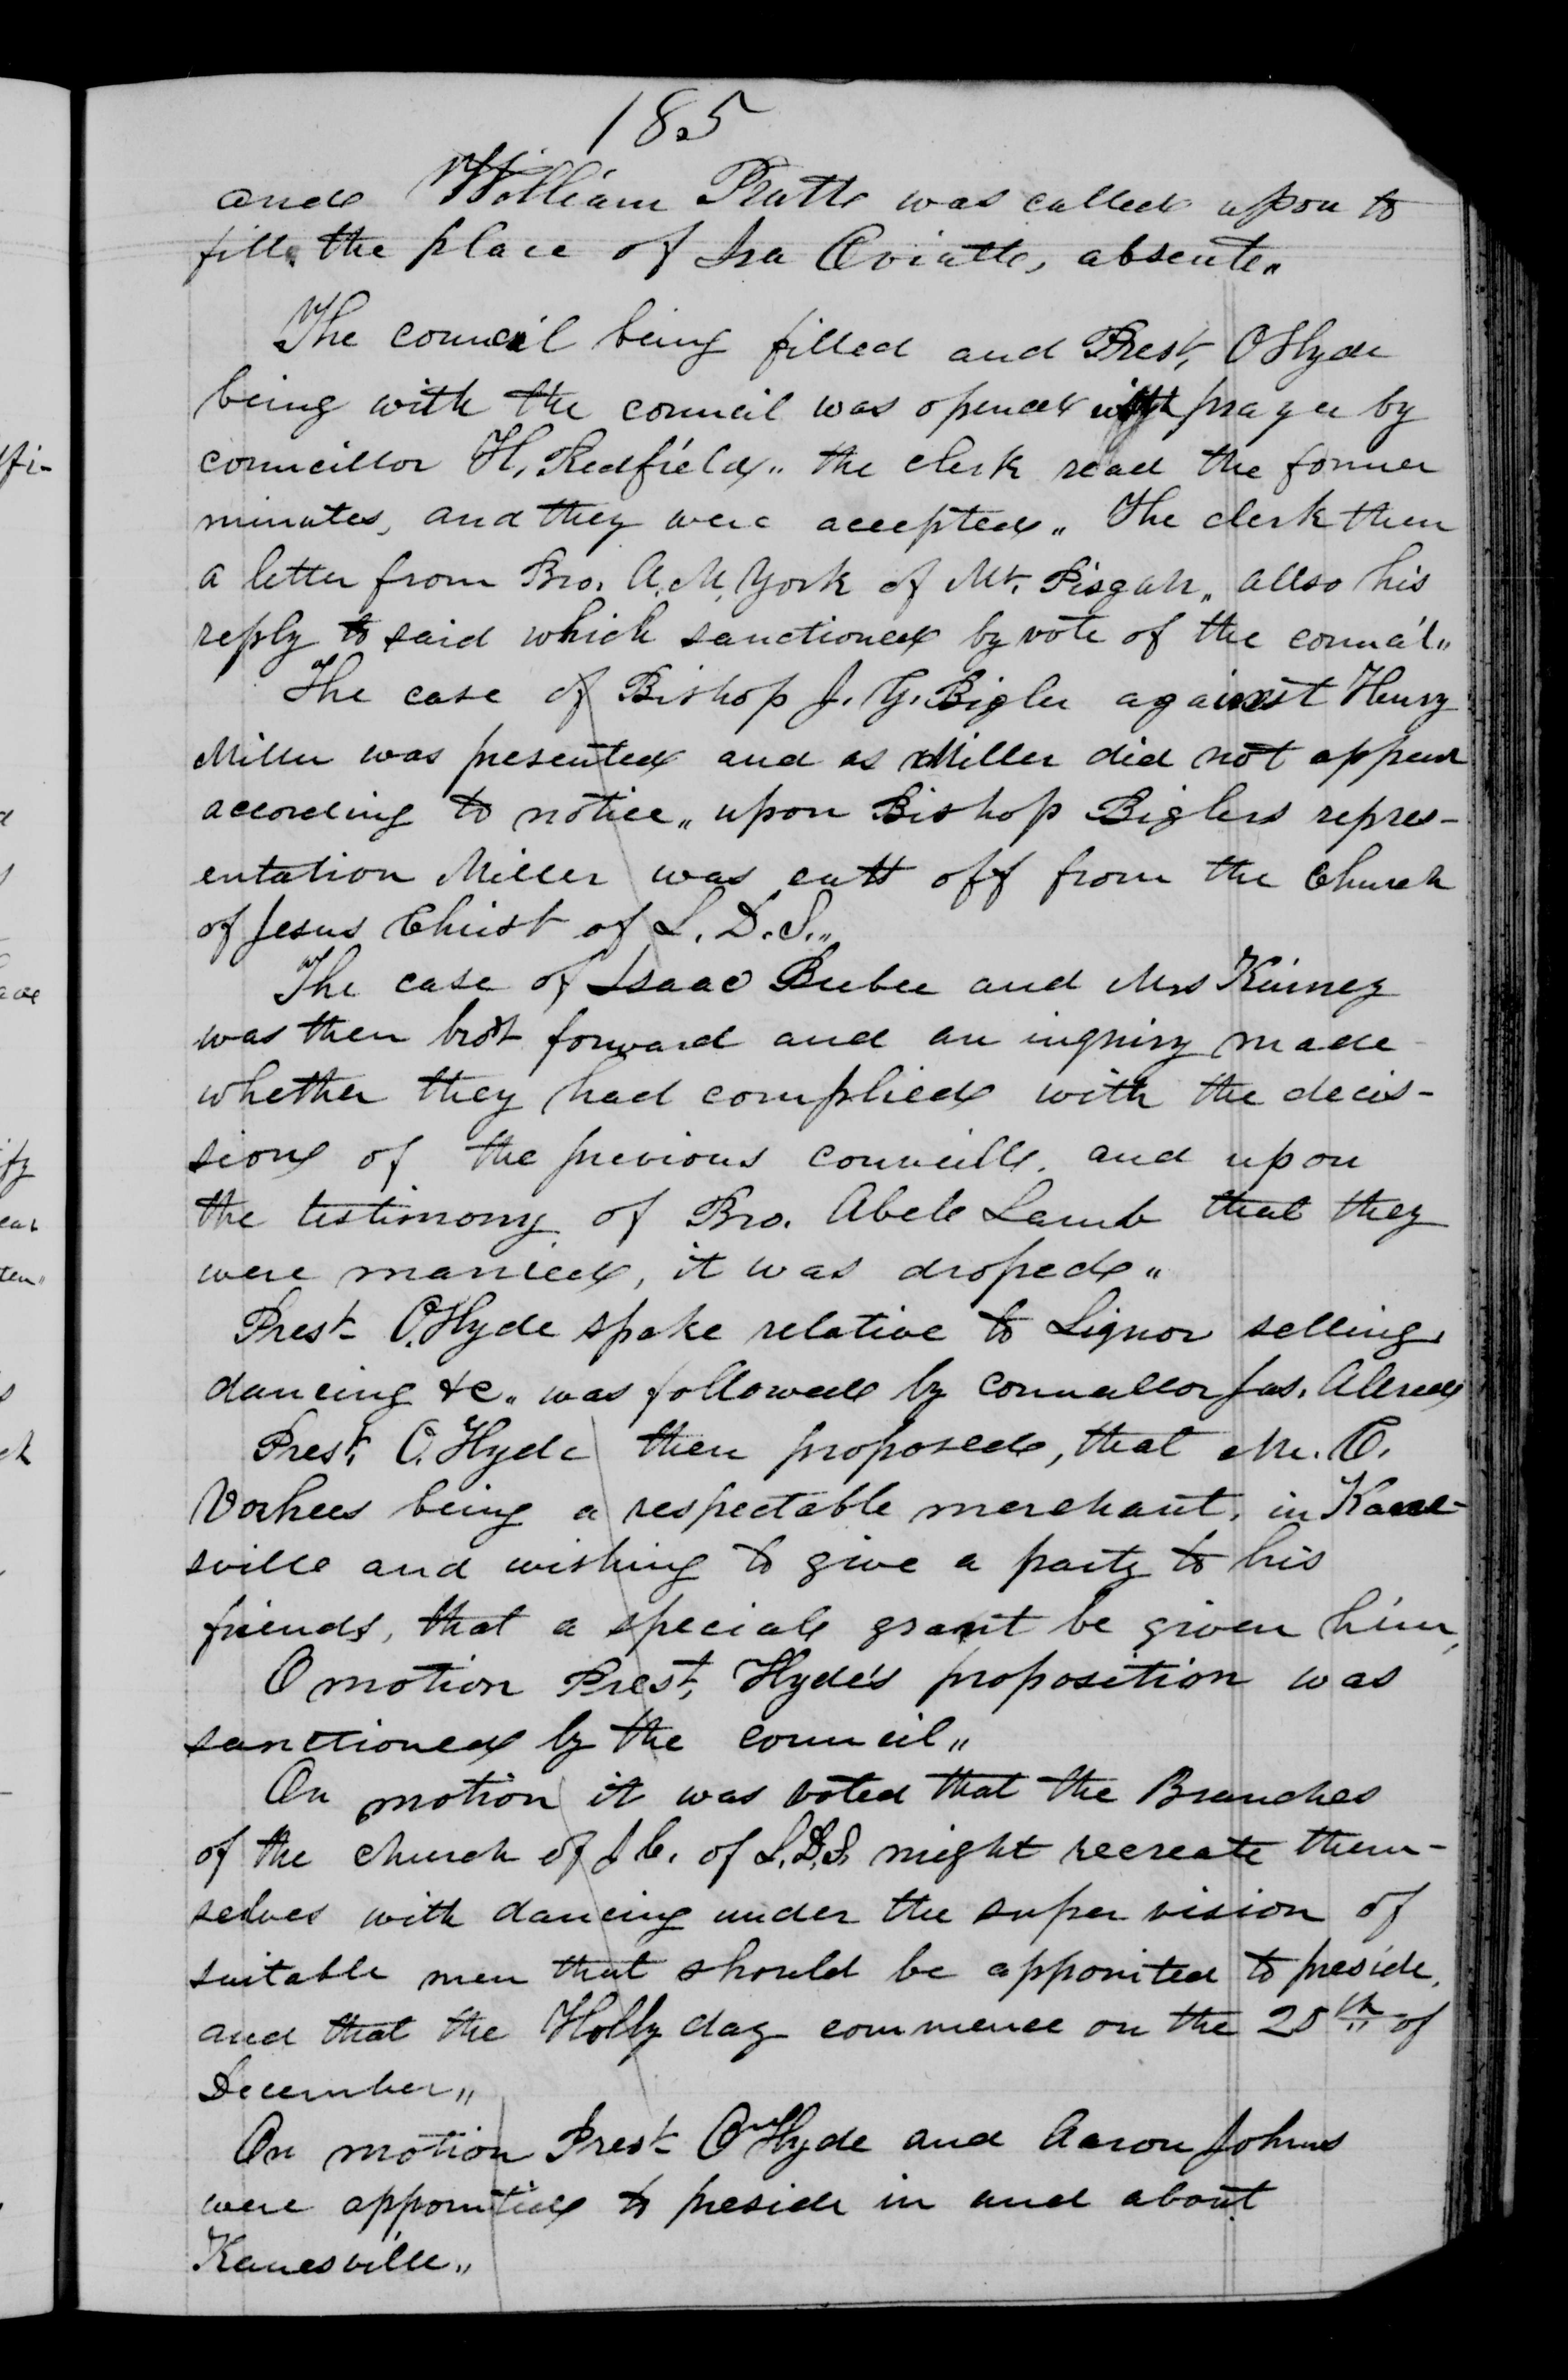 185
and William Pratt was called upon to
fill the place of Ira Oviatt, absent„
The council being filled and Prest, O Hyde
being with the council was opened with prayer by
councillor H, Redfield„ the clerk read the former
minutes, and they were accepted„ The clerk then
a letter from Bro. A. M. York of Mt. Pisgah„ allso his
reply to said which sanctioned by vote of the council„
The case of Bishop J. G. Bigler against Henry
Miller was presented and as Miller did not appear
according to notice„ upon Bishop Biglers repres-
entation Miller was cutt off from the Church
of Jesus Christ of L. D. S.„
The case of Isaac Beebee and Mrs Kinney
was then brot forward and an inquiry made
whether they had complied with the decis-
sion of the previous councill. and upon
the testimony of Bro. Abel Lamb that they
were married, it was droped„
Prest O. Hyde spoke relative to Liquor selling
dancing &c„ was followed by councillor Jas. Alred
Prest, O. Hyde then proposed, that Mr. O.
Vorhees being a respectable merchant, in Kane-
sville and wishing to give a party to his
friends, that a special grant be given him,
O motion Prest, Hyde's proposition was
sanctioned by the council„
On motion it was voted that the Branches
of the church of J C. of L.D.S. might recreate them-
selves with dancing under the super vision of
suitable men that should be appointed to preside,
and that the Holly day commence on the 25th of
December„
On motion Prest O Hyde and Aaron Johns
were appointed to preside in and about
Kanesville„